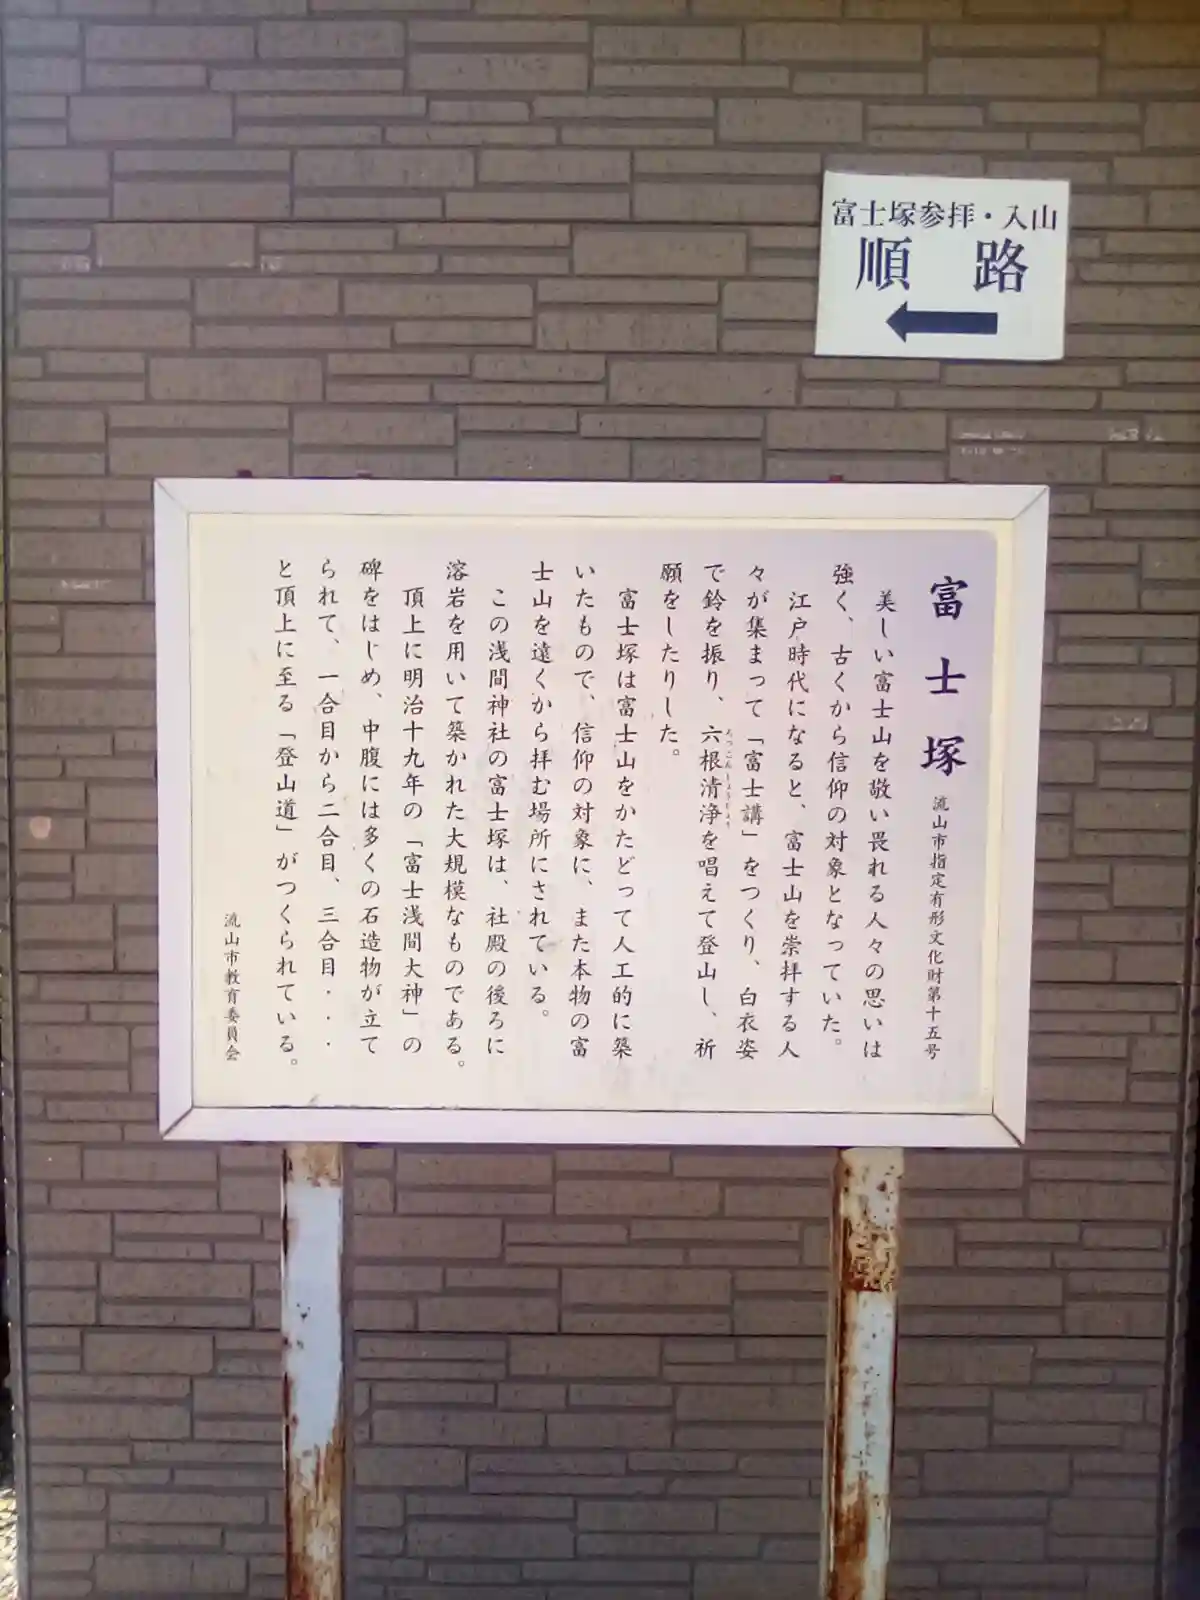 富士塚参拝・入山
順路
富士塚 流山市指定有形文化財第十五号
美しい富士山を敬い畏れる人々の思いは
強く、古くから信仰の対象となっていた。
江戸時代になると、富士山を崇拝する人
々が集まって「富士講」をつくり、白衣姿
で鈴を振り、六根清浄を唱えて登山し、祈
ろっこんしょうじょう
願をしたりした。
富士塚は富士山をかたどって人工的に築
いたもので、信仰の対象に、また本物の富
士山を遠くから拝む場所にされている。
この浅間神社の富士塚は、社殿の後ろに
溶岩を用いて築かれた大規模なものである。
頂上に明治十九年の「富士浅間大神」の
碑をはじめ、中腹には多くの石造物が立て
られて、一合目から二合目、三合目・・・
と頂上に至る「登山道」がつくられている。
流山市教育委員会